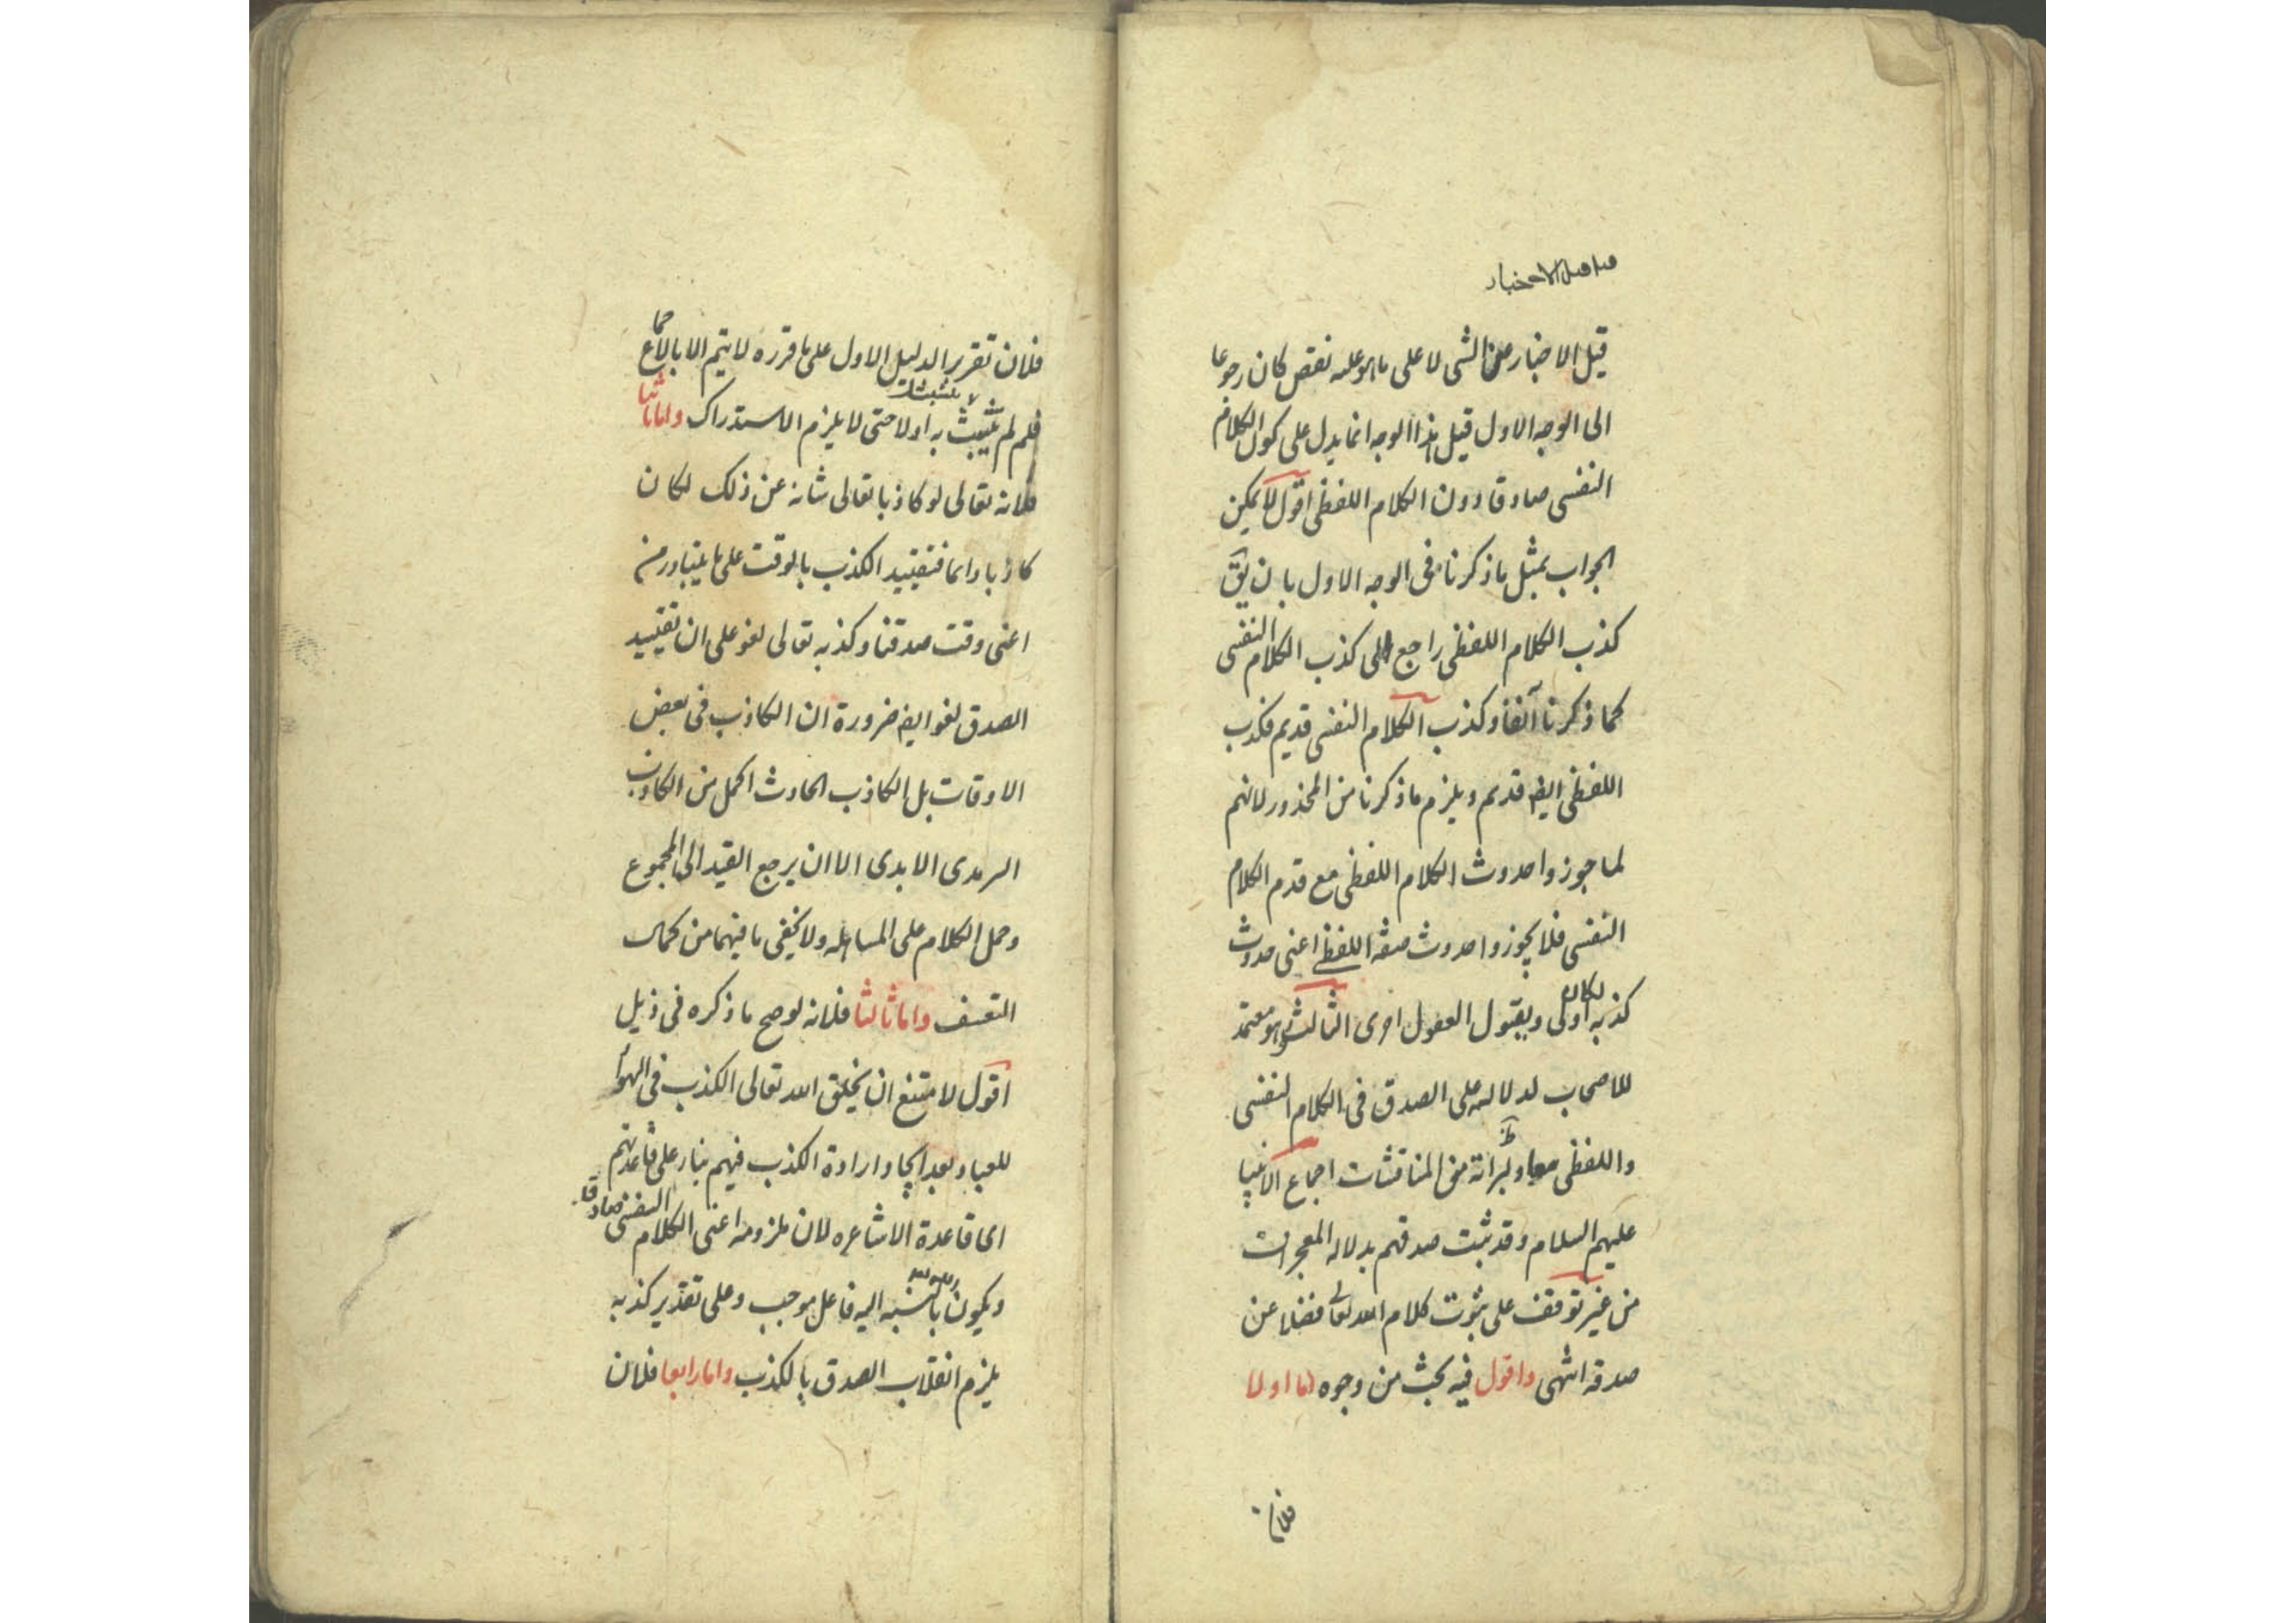 قيل الاخبار
قيل الاخبار عن الشى لا على ما هو عليه نقص كان رجوعا
الى الوجه الاول قيل هذا الوجه انما يدل على كون الكلام
النفسى صادقا دون الكلام اللفظى اقول لا يمكن
الجواب بمثل ما ذكرنا فى الوجه الاول بان يق
كذب الكلام اللفظى راجع الى كذب الكلام النفسى
كما ذكرنا آنفا وكذب الكلام النفسى قديم فكذب
اللفظى ايضا قديم ويلزم ما ذكرنا من المحذور لانهم
لما جوزوا حدوث الكلام اللفظى مع قدم الكلام
النفسى فلا يجوزوا حدوث صفة اللفظى اعنى حدوث
كذبه لكان اولى وبقبول العقول احرى الثالث وهو معتمد
للاصحاب لدلالته على الصدق فى الكلام النفسى
واللفظى معا ولبرائة من المناقشات اجماع الانبيا
عليهم السلام وقد ثبت صدقهم بدلاله المعجزات
من غير توقف على ثبوت كلام الله تعالى فضلا عن
صدقه انتهى واقول فيه بحث من وجوه اما اولا
فلان
فلان تقرير الدليل الاول على ما قرره لا يتم الا بالاجماع
فلم لم يثبت به اولا حتى لا يلزم الاستدراك واما ثانيا
فلانه تعالى لو كان كاذبا تعالى شانه عن ذلك لكان
كاذبا دائما فتقييد الكذب بالوقت على ما يتبادر من
اعنى وقت صدقنا وكذبه تعالى لغو على ان تقييد
الصدق لغو ايضا ضرورة ان الكاذب فى بعض
الاوقات بل الكاذب الحادث اكمل من الكاذب
السرمدى الابدى الا ان يرجع القيد الى المجموع
وحمل الكلام على المساهله ولا يخفى ما فيهما من كمال
التعسف واما ثالثا فلانه لو صح ما ذكره فى ذيل
اقول لا متنع ان يخلق الله تعالى الكذب فى الهوا
للعباد بعد ايجاد ارادة الكذب فيهم بناء على قاعدتهم
اى قاعدة الاشاعره لان ملزومه اعنى الكلام النفسى صادقا
ويكون بالنسبه اليه فاعل موجب وعلى تقدير كذبه
يلزم انقلاب الصدق بالكذب واما رابعا فلان